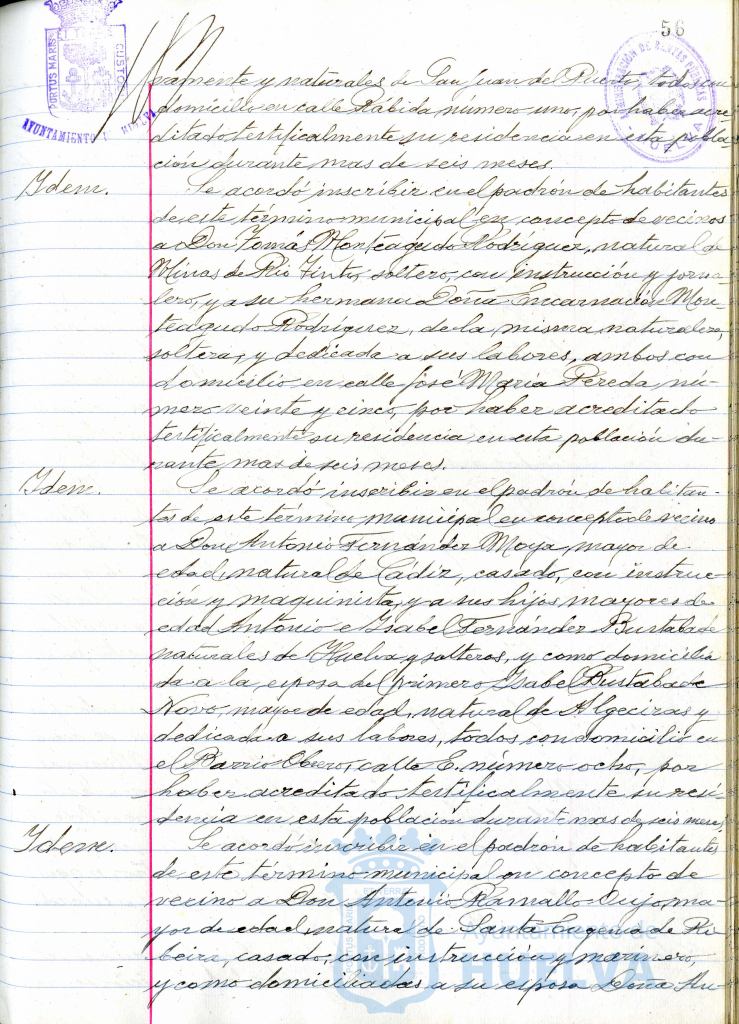 56
PORTUS MARIS CUSTODIA
AYUNTAMIENTO HUELVA
ADMINISTRACIÓN DE RENTAS PÚBLICAS HUELVA
vamente y naturales de San Juan del Puerto, todos con
domicilio en calle Rábida, número uno, por haber acre-
ditado testificalmente su residencia en esta pobla-
ción durante mas de seis meses.
Idem. Se acordó inscribir en el padrón de habitantes
de este término municipal en concepto de vecinos
a Don Tomás Monteagudo Rodríguez, natural de
Minas de Rio Tinto, soltero, con instrucción y jorna-
lero, y a su hermana Doña Encarnación Mon-
teagudo Rodríguez, de la misma naturaleza,
soltera, y dedicada a sus labores, ambos con
domicilio en calle José María Pereda, nú-
mero veinte y cinco, por haber acreditado
testificalmente su residencia en esta población du-
rante mas de seis meses.
Idem. Se acordó inscribir en el padrón de habitan-
tes de este término municipal en concepto de vecino
a Don Antonio Fernández Moya, mayor de
edad, natural de Cádiz, casado, con instruc-
ción y maquinista, y a sus hijos mayores de
edad Antonio e Isabel Fernández Bustabade
naturales de Huelva y solteros, y como domicilia
da a la esposa del primero Isabel Bustabade
Novo, mayor de edad, natural de Algeciras y
dedicada a sus labores, todos con domicilio en
el Barrio Obrero, calle E. número ocho, por
haber acreditado testificalmente su resi-
dencia en esta población durante mas de seis meses.
Idem. Se acordó inscribir en el padrón de habitantes
de este término municipal en concepto de
vecino a Don Antonio Ramallo ma-
yor de edad, natural de Santa Eugenia de Ri
beira, casado, con instrucción y marinero,
y como domiciliadas a su esposa Doña
Ayuntamiento de
HUELVA